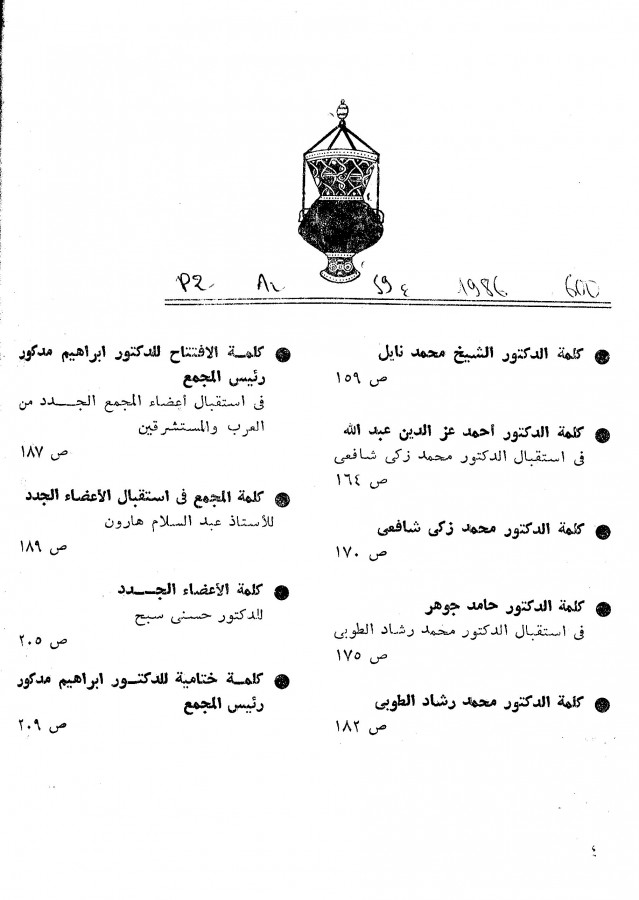 P2 Az 59٤ 1986 600
كلمة الدكتور الشيخ محمد نايل
ص ١٥٩
كلمة الدكتور أحمد عز الدين عبد الله
فى استقبال الدكتور محمد زكى شافعى
ص ١٦٤
كلمة الدكتور محمد زكى شافعى
ص ١٧٠
كلمة الدكتور حامد جوهر
فى استقبال الدكتور محمد رشاد الطوبى
ص ١٧٥
كلمة الدكتور محمد رشاد الطوبى
ص ١٨٢
كلمـة الافتتاح للدكتور ابراهيم مدكور
رئيس المجمع
فى استقبال أعضاء المجمع الجـــدد من
العرب والمستشرقين
ص ١٨٧
كلمة المجمع فى استقبال الأعضاء الجدد
للأستاذ عبد السلام هارون
ص ١٨٩
كلمة الأعضاء الجـــدد
للدكتور حسنى سبح
ص ٢٠٥
كلمـة ختامية للدكتـور ابراهيم مدكور
رئيس المجمع
ص ٢٠٩
٤